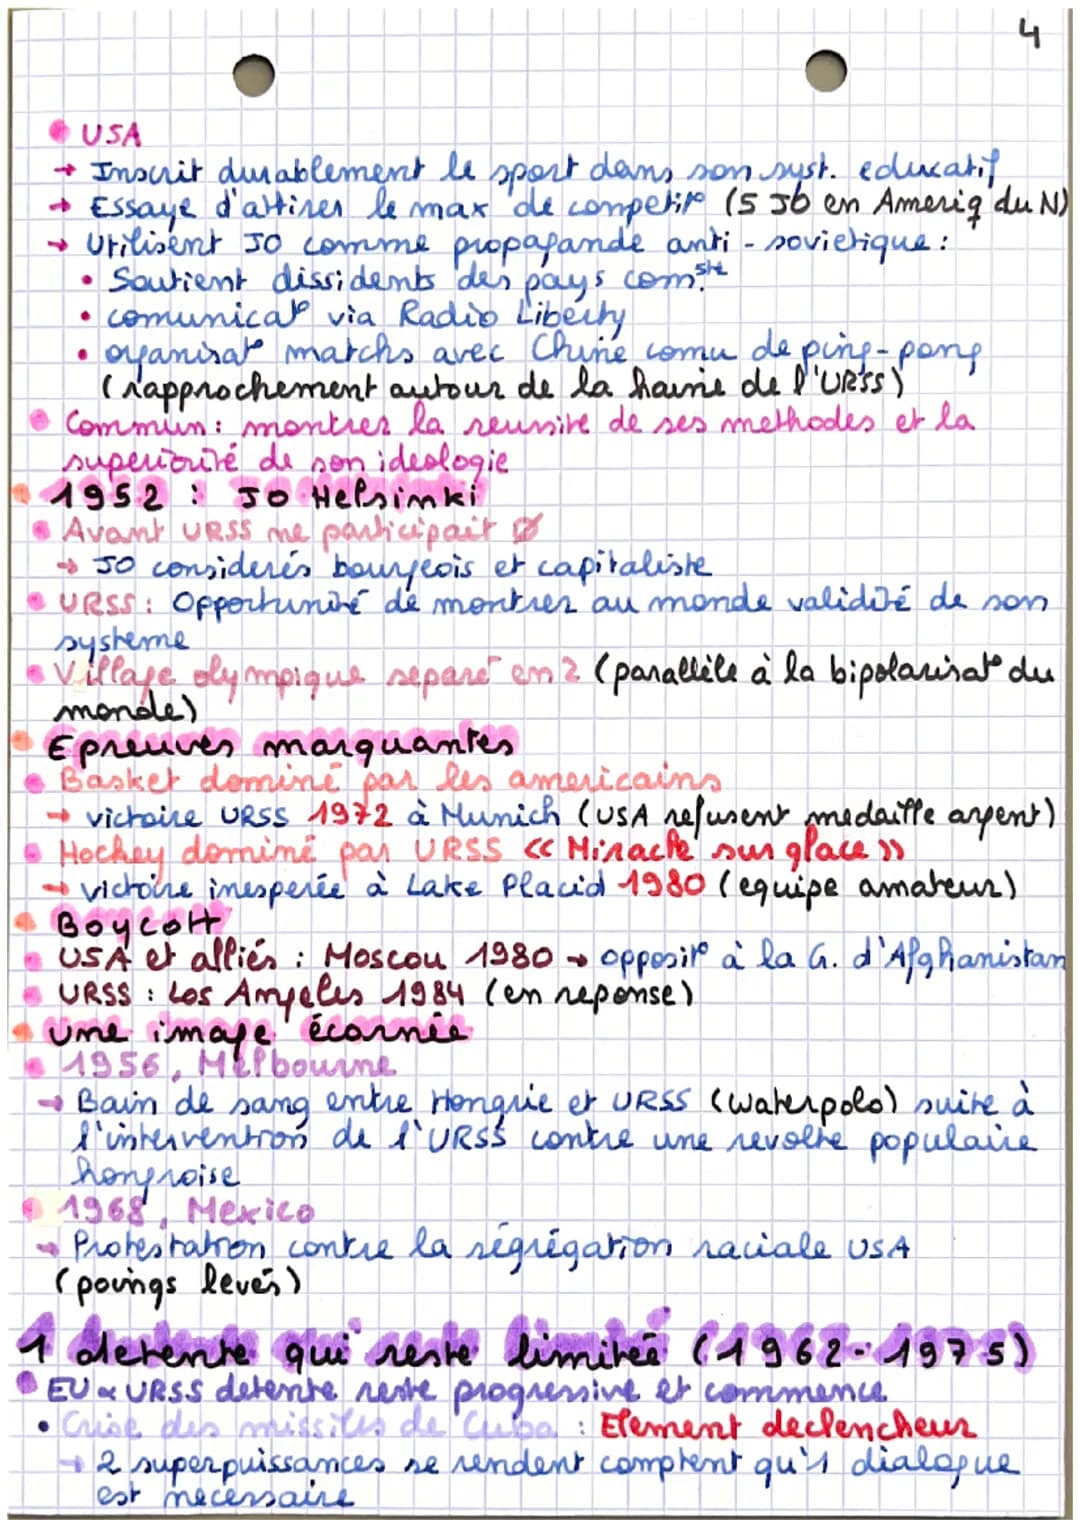 4
• USA
→ Inscrit durablement le sport dans son syst. educatif
→ Essaye d'attirer le max de competit° (5 JO en Ameriq du N)
→ Utilisent JO comme propagande anti-sovietique :
• Soutient dissidents des pays com.ste
• comunicat° via Radio Liberty
• organisat° matchs avec Chine comu de ping-pong
(rapprochement autour de la haine de l'URSS)
• Commun : montrer la reussite de ses methodes et la
superiorité de son ideologie
• 1952 : JO Helsinki
• Avant URSS ne participait Ø
→ JO considerés bourgeois et capitaliste
• URSS : Opportunité de montrer au monde validité de son
systeme
• Village olympique separé en 2 (parallèle à la bipolarisat° du
monde)
• Epreuves marquantes
• Basket dominé par les americains
→ victoire URSS 1972 à Munich (USA refusent medaille argent)
• Hockey dominé par URSS << Miracle sur glace >>
→ victoire inesperée à Lake Placid 1980 (equipe amateur)
• Boycott
• USA et alliés : Moscou 1980 → opposit° à la G. d'Afghanistan
• URSS : Los Angeles 1984 (en reponse)
• Une image écornée
• 1956, Melbourne
→ Bain de sang entre Hongrie et URSS (waterpolo) suite à
l'intervention de l'URSS contre une revolte populaire
hongroise
• 1968, Mexico
→ Protestation contre la ségrégation raciale USA
(poings levés)
1 detente qui reste limitée (1962-1975)
• EU & URSS detente reste progressive et commence
• Crise des missiles de Cuba : Element declencheur
→ 2 superpuissances se rendent comptent qu'1 dialogue
est necessaire